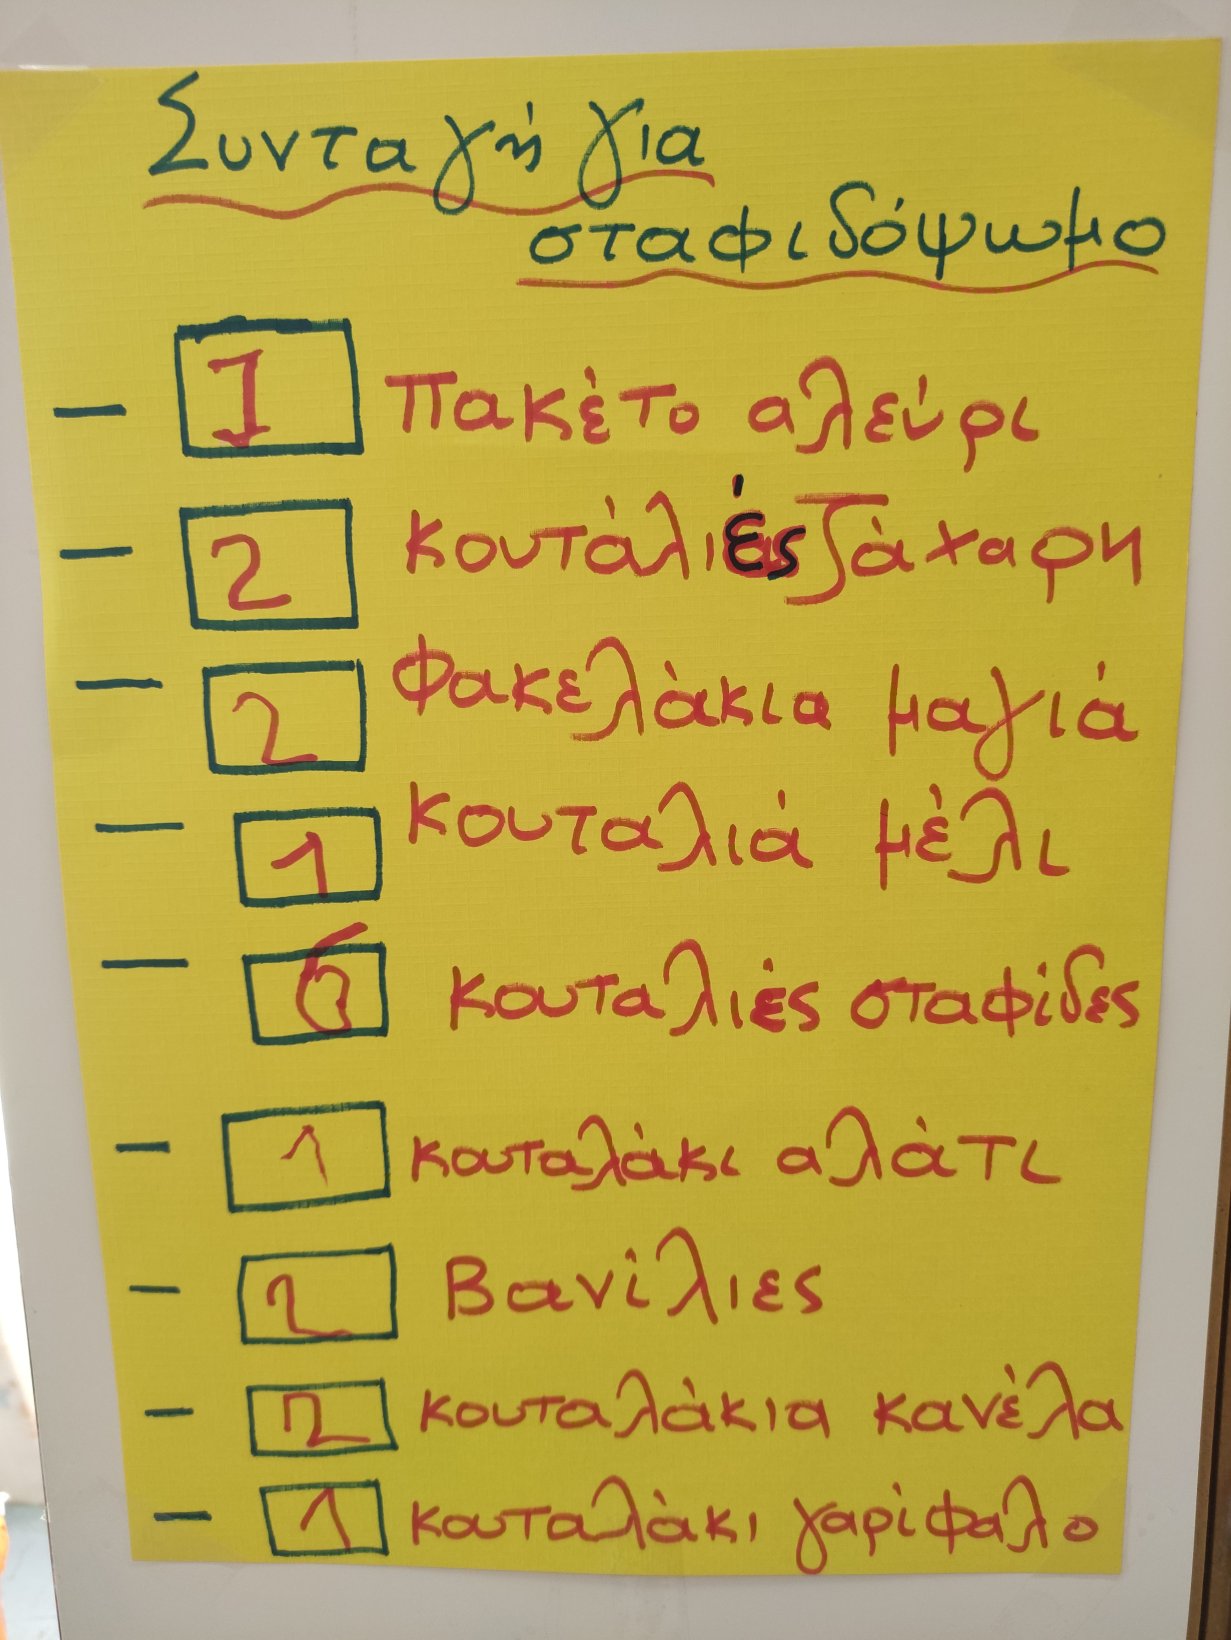 Συνταγή για
σταφιδόψωμο
- 1 Πακέτο αλεύρι
- 2 κουτάλιές ζάχαρη
- 2 Φακελάκια μαγιά
- 1 κουταλιά μέλι
- 6 κουταλιές σταφίδες
- 1 κουταλάκι αλάτι
- 2 Βανίλιες
- 2 κουταλάκια κανέλα
- 1 κουταλάκι γαρίφαλο